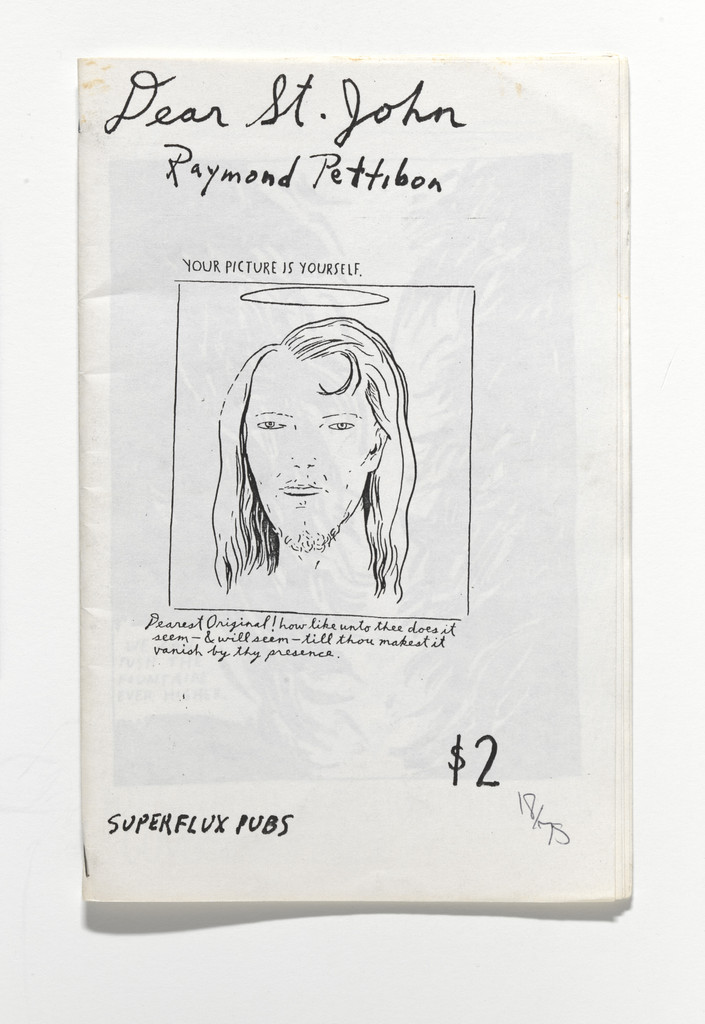 Dear St. John
Raymond Pettibon
YOUR PICTURE IS YOURSELF.
Dearest Original! how like unto thee does it
seem - & will seem - till thou makest it
vanish by thy presence.
$2
SUPERFLUX PUBS